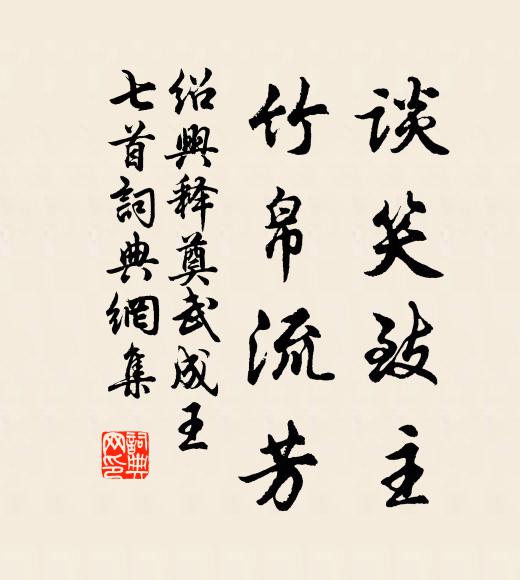 谈笑致主
竹帛流芳
绍興释奠武成王
七首詞典網集
詞典
网印